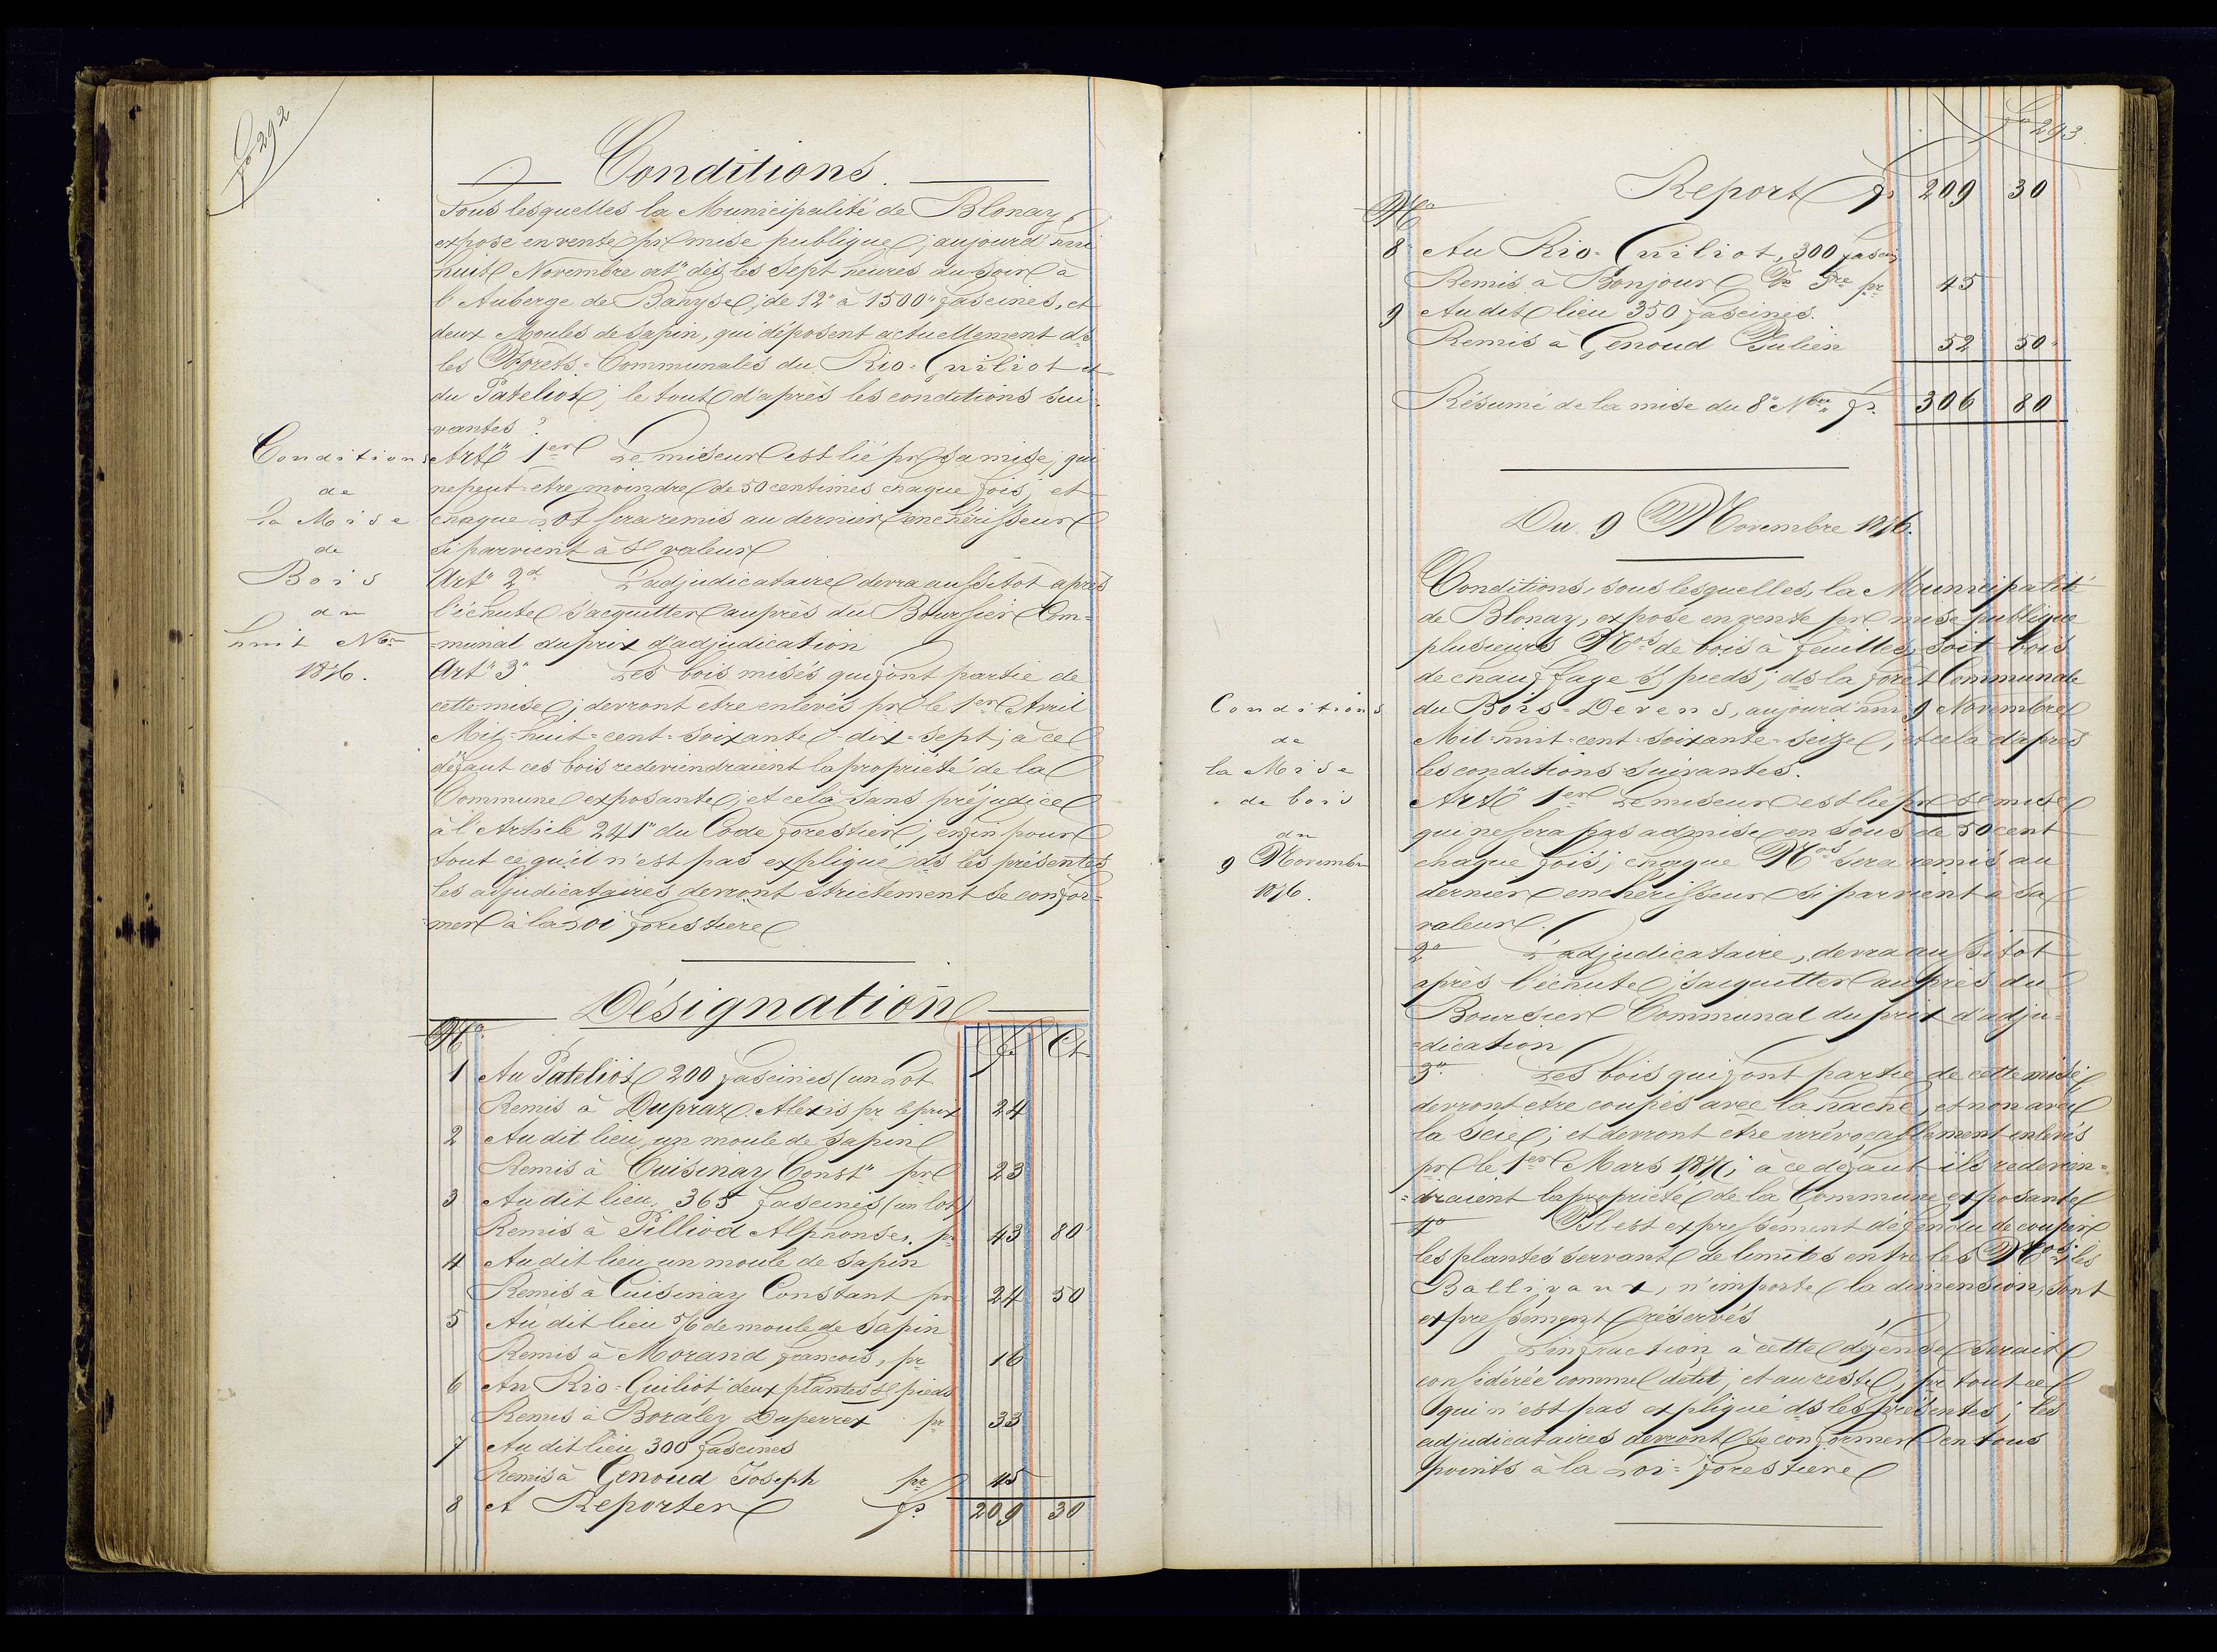 fo 292
Conditions.
Sous lesquelles la Municipalité de Blonay,
expose en vente pr mise publique, aujourd'hui
huit Novembre crt" dès les sept heures du soir à
l'Auberge de Bahyse; de 12" à 1500" fascines, et
deux Moules de sapin, qui déposent actuellement ds
les Forets-Communales du Rio-Guiliot et
du Pateliot; le tout d'après les conditions sui-
vantes:
Conditions
de
la Mise
de
Bois
du
huit Nbre
1876.
Art" 1er Le miseur est lié pr sa mise, qui
ne peut-être moindre de 50 centimes chaque fois; et
chaque Lot sera remis au dernier enchérisseur
si parvient à sa valeur
Art" 2d L'adjudicataire devra aussitôt après
l'échute s'acquitter auprès du Boursier Com-
=munal du prix d'adjudication
Art" 3" Les bois misés qui font partie de
cette mise; devront être enlevés pr le 1er Avril
Mil-huit-cent-soixante-dix-sept; à ce
défaut ces bois redeviendraient la propriété de la
Commune exposante; et cela sans préjudice
à l'Article 241" du Code forestier; enfin pour
tout ce qu'il n'est pas expliqué ds les présentes
les adjudicataires devront strictement se confor-
mer à la Loi forestière
Désignation
No fr. Ct
1 Au Pateliot 200 fascines (un Lot
Remis à Dupraz Alexis pr le prix 24
2 Au dit lieu, un moule de sapin
Remis à Cuisinay Const" pr 23
3 Au dit lieu, 365 fascines (un lot)
Remis à Pilliod Alphonse, pr 43 80
4 Au dit lieu un moule de sapin
Remis à Cuisinay Constant pr 24 50
5 Au dit lieu 5/6 de moule de sapin
Remis à Morand françois, pr 16
6 Au Rio-Guiliot deux plantes s/ pieds
Remis à Boraley Daperrex pr 33
7 Au dit lieu 300 fascines
Remis à Genoud Joseph pr 45
8 A Reporter fr 209 30
fo 293
Report fr 209 30
No
8 Au Rio-Guiliot, 300 fascin
Remis à Bonjour pr 45
9 Au dit lieu 350 fascines.
Remis à Genoud Julien 52 50
Résumé de la mise du 8" Nbre fr. 306 80
Du 9 Novembre 1876.
Conditions
de
la Mise
de bois
du
9 Novembre
1876.
Conditions, sous lesquelles, la Municipalité
de Blonay, expose en vente pr mise publique
plusieurs Nos de bois à feuilles, soit bois
de chauffage s/ pieds; ds la forêt Communale
du Bois-Devens, aujourd'hui 9 Novembre
Mil-huit-cent-soixante-seize, et cela d'après
les conditions suivantes.
Art" 1er Le miseur est lié pr sa mise
qui ne sera pas admise en sous de 50 cent
chaque fois; chaque Nos sera remis au
dernier enchérisseur si parvient à sa
valeur.
2o L'adjudicataire, devra aussitôt
après l'échute s'acquitter auprès du
Boursier Communal du prix d'adju-
=dication
3o Les bois qui font partie de cette mise
devront etre coupés avec la hache, et non avec
la scie; et devront être irrévocablement enlevés
pr le 1er Mars 1877; à ce défaut ils redevien=
=draient la propriété de la Commune exposante
4o Il est expressément défendu de couper
les plantes servant de limites entre les Nos; les
Balivaux, n'importe la dimension, sont
expressément réservés
L'infraction à cette défense serait
considérée comme délit; et au reste, pr tout ce
qui n'est pas expliqué ds les présentes; les
adjudicataires devront se conformer en tous
points à la Loi-forestière